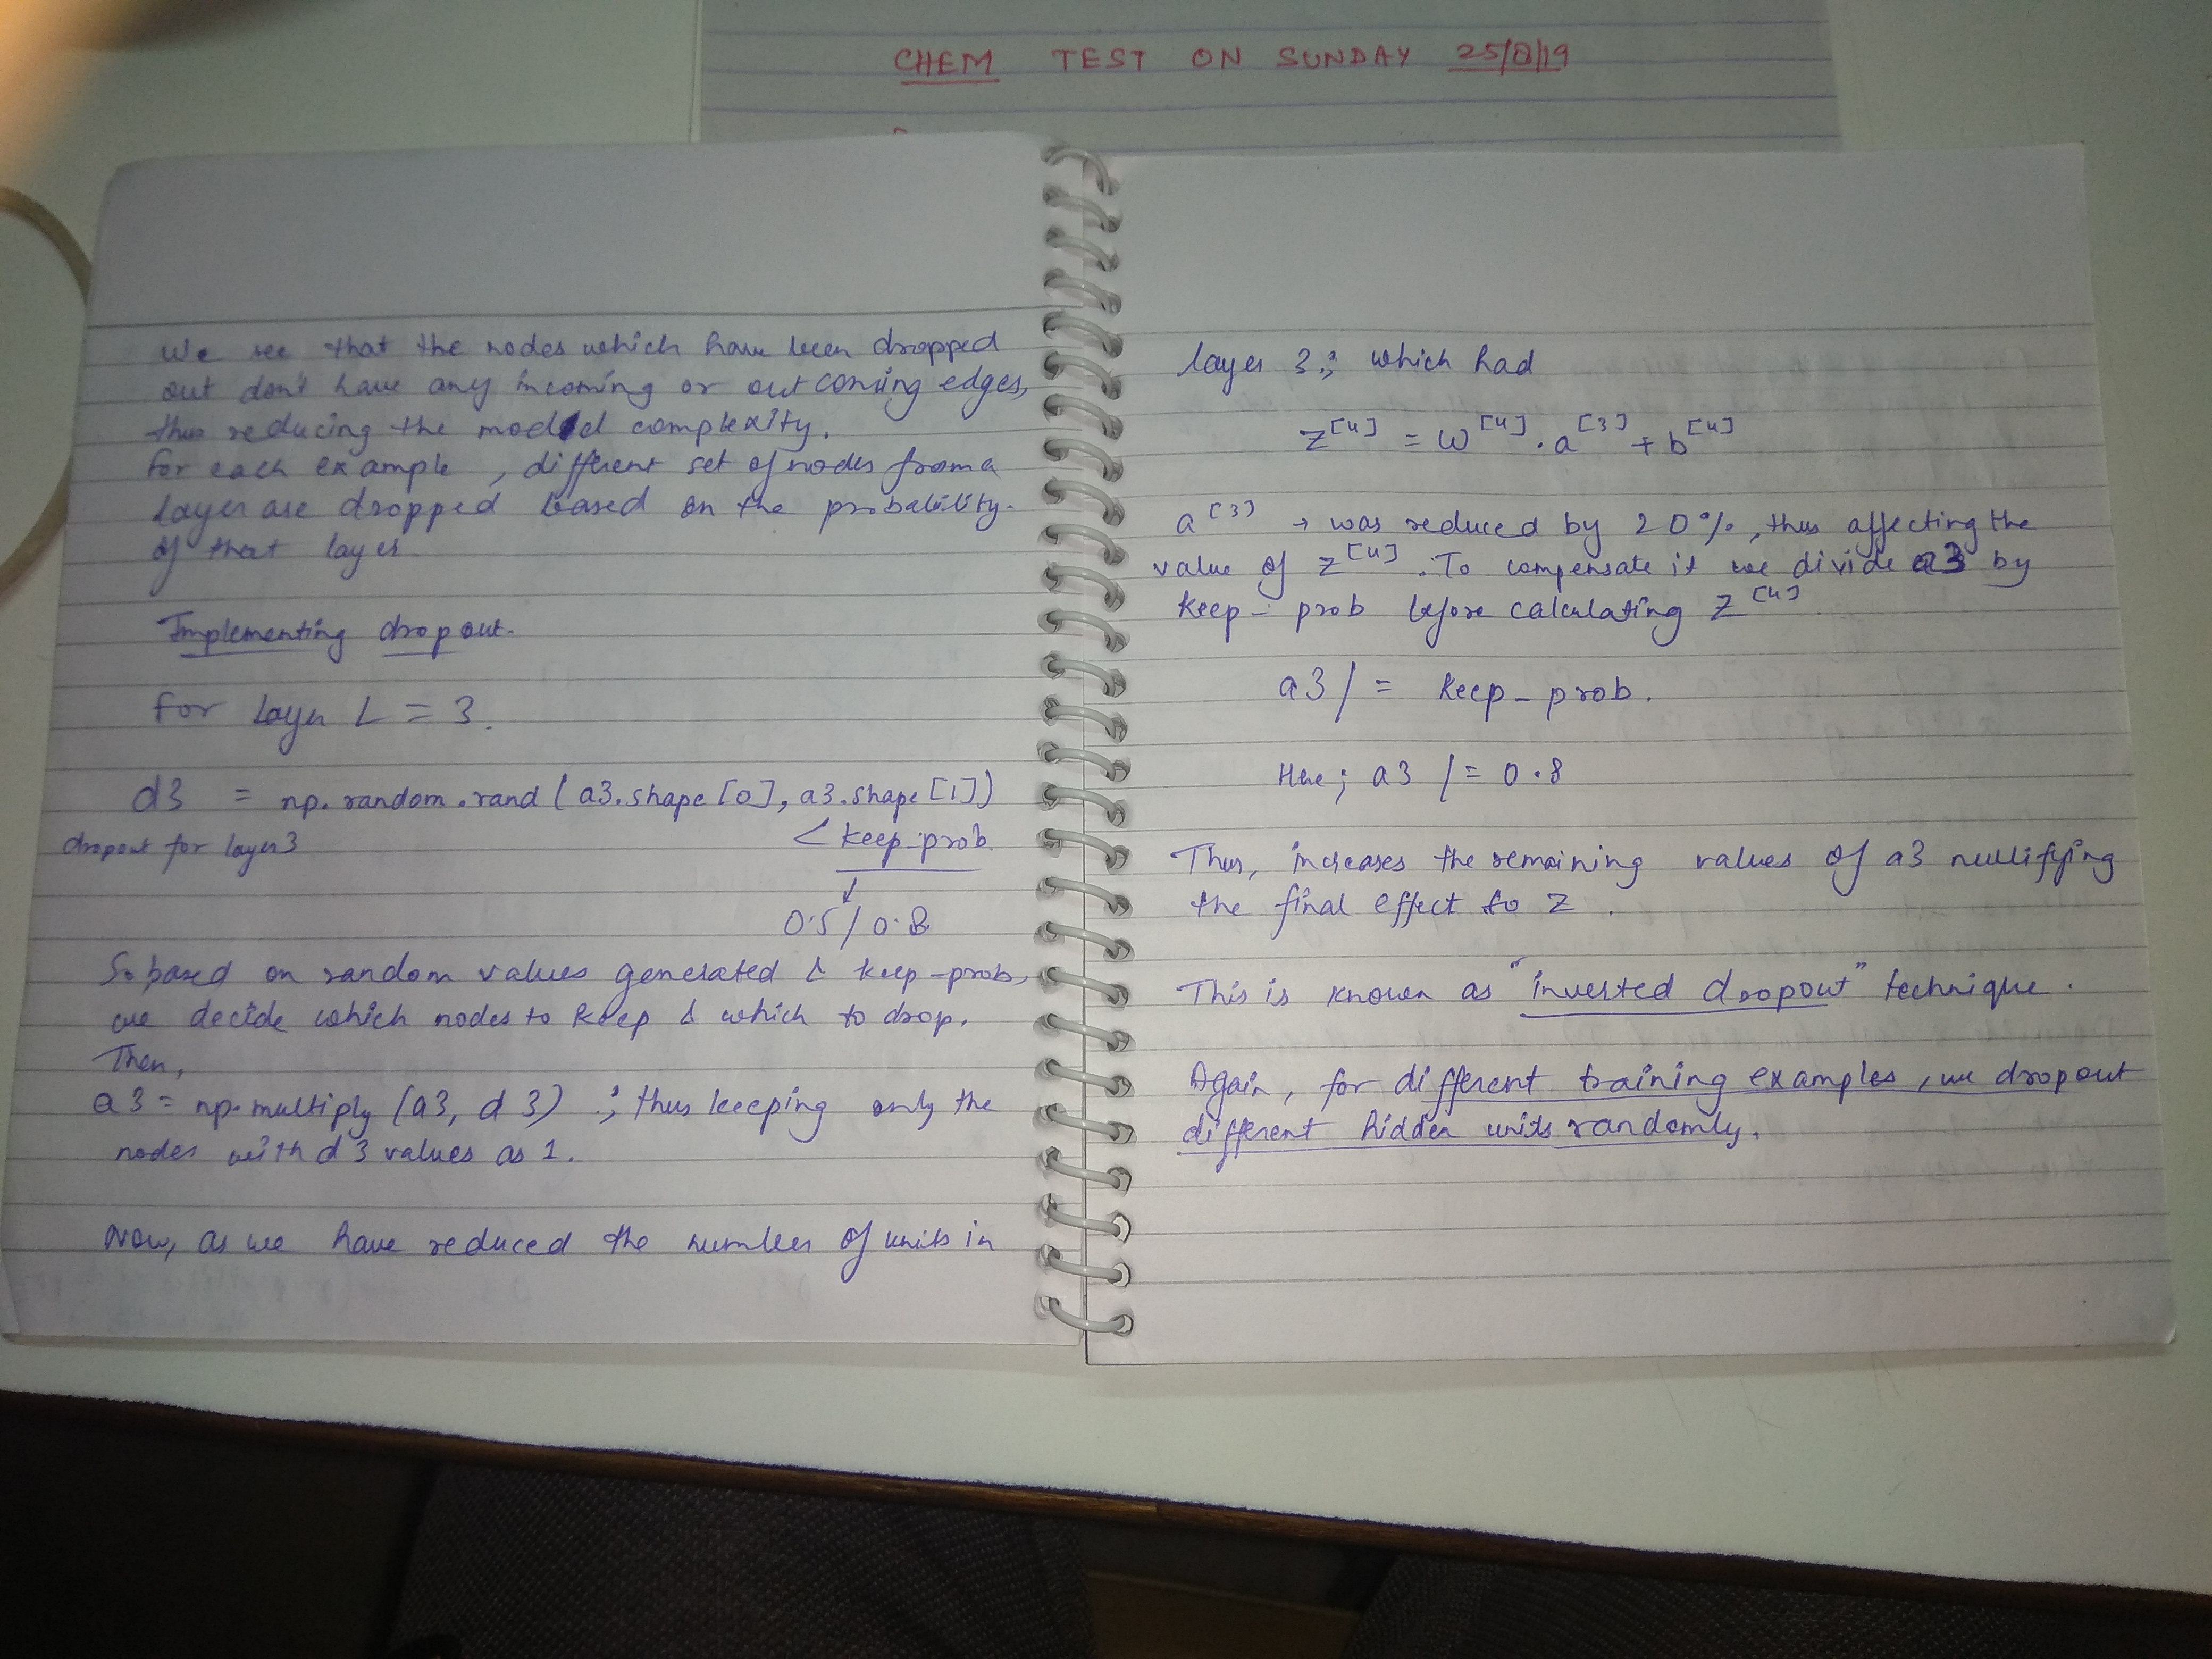 CHEM TEST ON SUNDAY 25/8/19
We see that the nodes which have been dropped
out don't have any incoming or outcoming edges,
thus reducing the model complexity.
For each example, different set of nodes from a
layer are dropped based on the probability
of that layer.
Implementing dropout.
For layer L = 3.
d3 = np.random.rand(a3.shape[0], a3.shape[1])
< keep-prob
dropout for layer3
↓
0.5/0.8
So based on random values generated & keep-prob,
we decide which nodes to keep & which to drop.
Then,
a3 = np.multiply (a3, d3) ; thus keeping only the
nodes with d3 values as 1.
Now, as we have reduced the number of units in
layer 3; which had
z[4] = w[4] . a[3] + b[4]
a[3] → was reduced by 20%, thus affecting the
value of z[4]. To compensate it we divide a3 by
keep-prob before calculating z[4].
a3 /= keep-prob.
Here; a3 /= 0.8
Thus, increases the remaining values of a3 nullifying
the final effect to z.
This is known as "inverted dropout" technique.
Again, for different training examples, we dropout
different hidden units randomly.